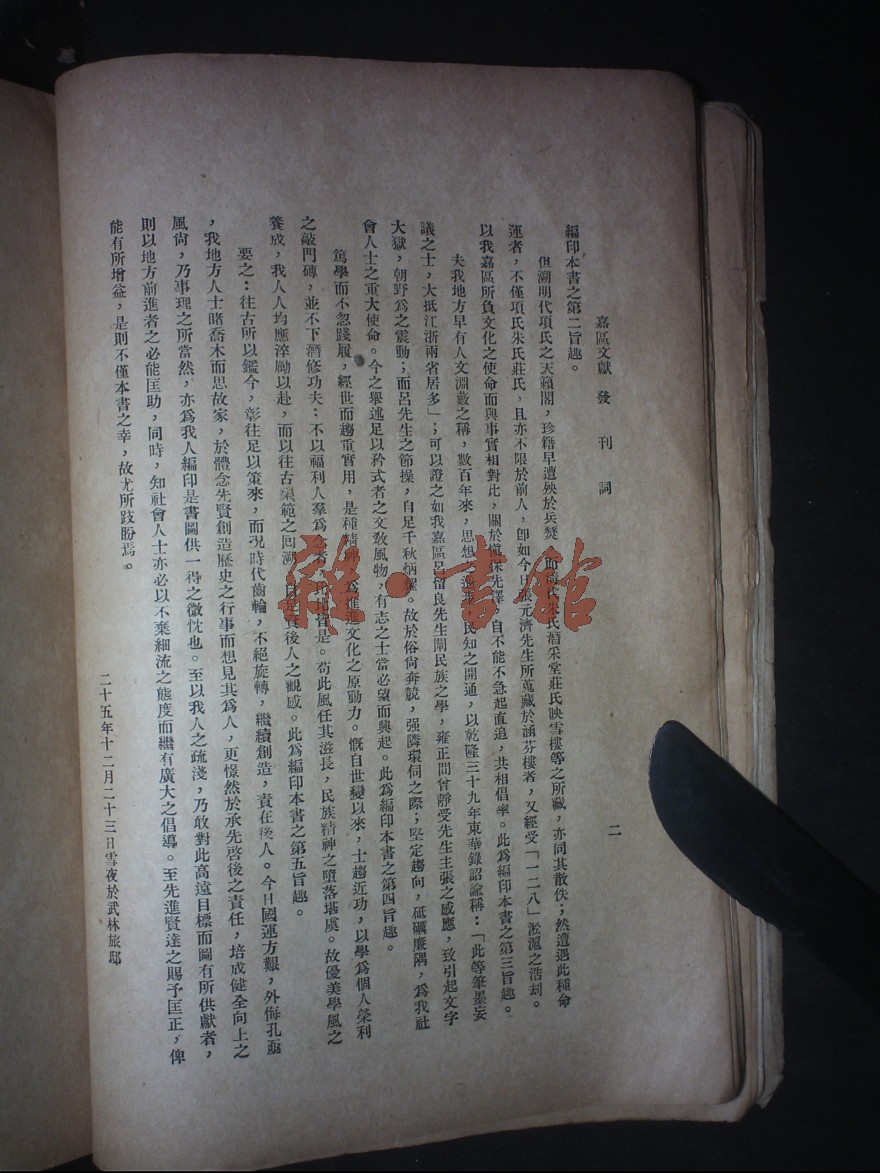 嘉區文獻 發刊詞
二
編印本書之第二旨趣。
但溯明代項氏之天籟閣，珍籍早遭殃於兵燹，而朱氏潛采堂莊氏映雪樓等之所藏，亦同其散佚；然遭遇此種命
運者，不僅項氏朱氏莊氏，且亦不限於前人，卽如今日張元濟先生所蒐藏於涵芬樓者，又經受「一二八」淞滬之浩刦。
以我嘉區所負文化之使命而與事實相對比，關於愼保先澤，自不能不急起直追，共相倡率。此爲編印本書之第三旨趣。
夫我地方早有人文淵藪之稱，數百年來，思想之進，民知之開通，以乾隆三十九年東華錄詔諭稱：「此等筆墨妄
議之士，大抵江浙兩省居多」；可以證之如我嘉區呂留良先生闡民族之學，雍正間曾靜受先生主張之感應，致引起文字
大獄，朝野爲之震動；而呂先生之節操，自足千秋炳燿。故於俗尙奔競，强隣環伺之際；堅定趨向，砥礪廉隅，爲我社
會人士之重大使命。今之舉述足以矜式者之文敎風物，有志之士當必望而興起。此爲編印本書之第四旨趣。
篤學而不忽踐履，經世而趨重實用，是種精神，爲推進文化之原動力。慨自世變以來，士趨近功，以學爲個人榮利
之敲門磚，並不下潛修功夫：不以福利人羣爲皆是。苟此風任其滋長，民族精神之墮落堪虞。故優美學風之
養成，我人人均應淬勵以赴，而以往古榘範之囘溯，自足資後人之觀感。此爲編印本書之第五旨趣。
要之：往古所以鑑今，彰往足以策來，而況時代齒輪，不絕旋轉，繼續創造，責在後人。今日國運方艱，外侮孔亟
，我地方人士睹喬木而思故家，於體念先賢創造歷史之行事而想見其爲人，更憬然於承先啓後之責任，培成健全向上之
風尙，乃事理之所當然，亦爲我人編印是書圖供一得之微忱也。至以我人之疏淺，乃敢對此高遠目標而圖有所供獻者，
則以地方前進者之必能匡助，同時，知社會人士亦必以不棄細流之態度而繼有廣大之倡導。至先進賢達之賜予匡正，俾
能有所增益，是則不僅本書之幸，故尤所跂盼焉。
二十五年十二月二十三日雪夜於武林旅邸
雜·書館